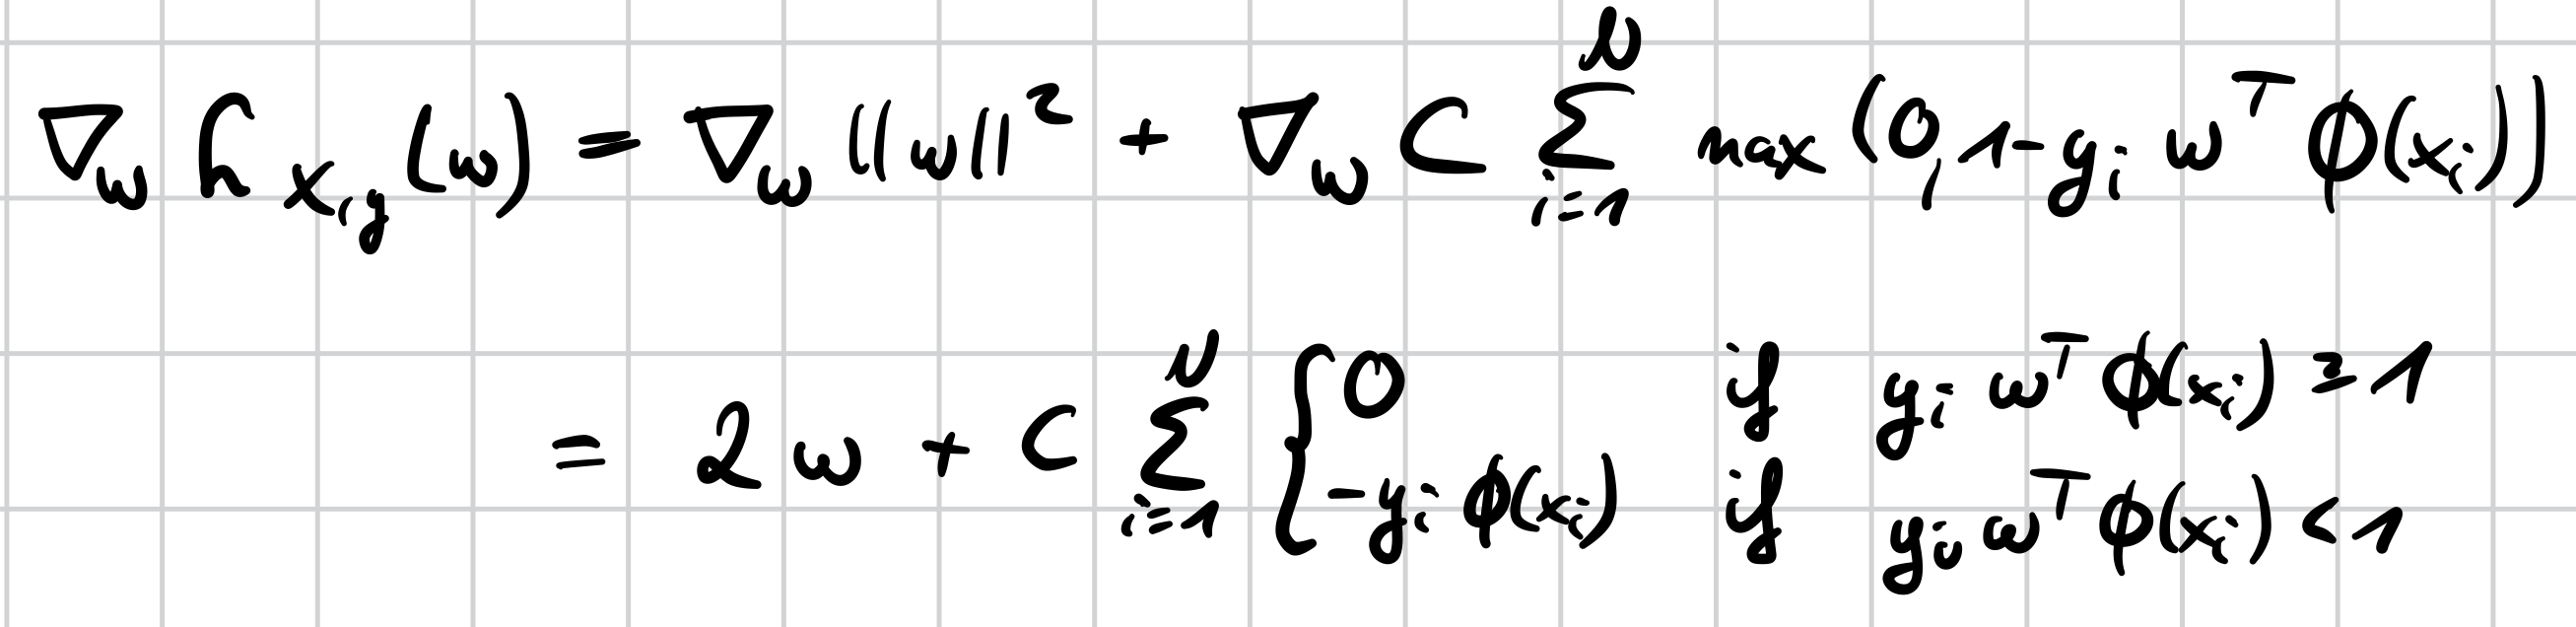 ∇_w h_{x,y}(w) = ∇_w ||w||² + ∇_w C ∑_{i=1}^{N} max(0, 1 - y_i w^T ϕ(x_i))
= 2w + C ∑_{i=1}^{N} { 0 if y_i w^T ϕ(x_i) ≥ 1
-y_i ϕ(x_i) if y_i w^T ϕ(x_i) < 1